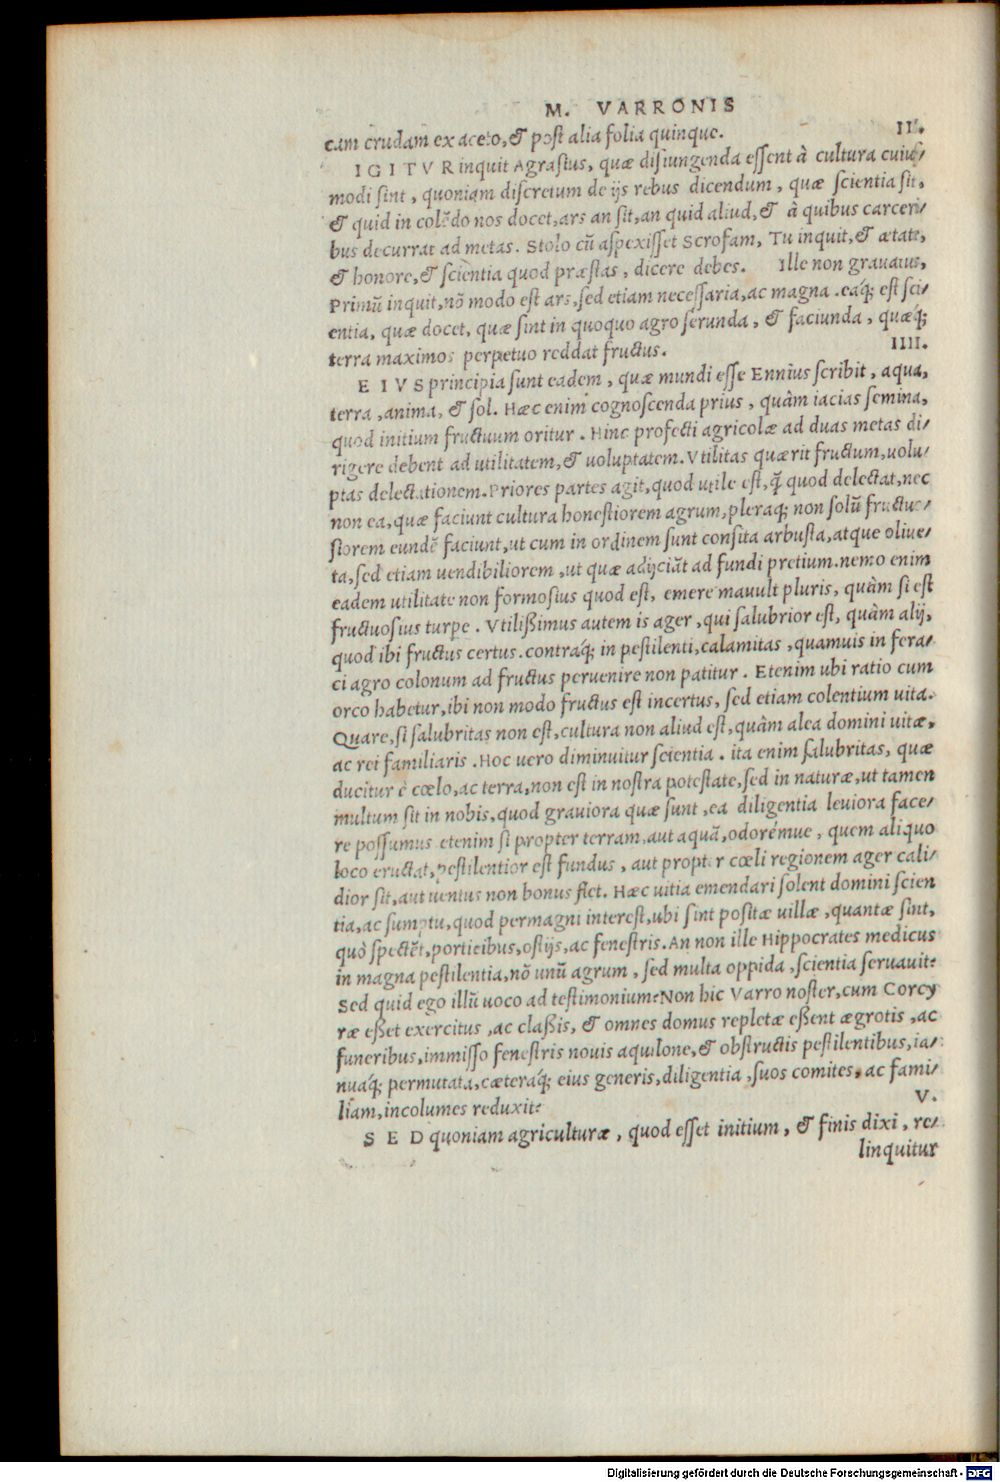 M. VARRONIS
cam crudam ex aceto, & post alia folia quinque.
III.
IGITVR inquit Agrasius, quæ disiungenda essent à cultura cuius/
modi sint, quoniam discretum de ijs rebus dicendum, quæ scientia sit,
& quid in colẽdo nos docet, ars an sit, an quid aliud, & à quibus carceri/
bus decurrat ad metas. Stolo cũ aspexisset Scrofam, Tu inquit, & ætate,
& honore, & scientia quod præstas, dicere debes. Ille non gravatus,
Primũ inquit, nõ modo est ars, sed etiam necessaria, ac magna. eaq́; est sci/
entia, quæ docet, quæ sint in quoquo agro serunda, & faciunda, quæq́;
terra maximos perpetuo reddat fructus.
IIII.
EIVS principia sunt eadem, quæ mundi esse Ennius scribit, aqua,
terra, anima, & sol. Hæc enim cognoscenda prius, quàm iacias semina,
quod initium fructuum oritur. Hinc profecti agricolæ ad duas metas di/
rigere debent ad utilitatem, & uoluptatem. Vtilitas quærit fructum, uolu/
ptas delectationem. Priores partes agit, quod utile est, q̃ quod delectat, nec
non ea, quæ faciunt cultura honestiorem agrum, pleraq; non solũ fructuo/
siorem eundẽ faciunt, ut cum in ordinem sunt consita arbusta, atque oliue/
ta, sed etiam uendibiliorem, ut quæ adijciãt ad fundi pretium. nemo enim
eadem utilitate non formosius quod est, emere mauult pluris, quàm si est
fructuosius turpe. Vtilißimus autem is ager, qui salubrior est, quàm alij,
quod ibi fructus certus. contraq́; in pestilenti, calamitas, quamuis in fera/
ci agro colonum ad fructus peruenire non patitur. Etenim ubi ratio cum
orco habetur, ibi non modo fructus est incertus, sed etiam colentium uita.
Quare, si salubritas non est, cultura non aliud est, quàm alea domini uitæ,
ac rei familiaris. Hoc uero diminuitur scientia. ita enim salubritas, quæ
ducitur è cœlo, ac terra, non est in nostra potestate, sed in naturæ, ut tamen
multum sit in nobis, quod graviora quæ sunt, ea diligentia leuiora face/
re possumus etenim si propter terram, aut aquã, odorémue, quem aliquo
loco eructat, pestilentior est fundus, aut propter cœli regionem ager cali/
dior sit, aut uentus non bonus flet. Hæc uitia emendari solent domini scien
tia, ac sumptu, quod permagni interest, ubi sint positæ uillæ, quantæ sint,
quò spectẽt, porticibus, ostijs, ac fenestris. An non ille Hippocrates medicus
in magna pestilentia, nõ unũ agrum, sed multa oppida, scientia seruauit?
Sed quid ego illũ uoco ad testimonium? Non hic Varro noster, cum Corcy
ræ eßet exercitus, ac claßis, & omnes domus repletæ eßent ægrotis, ac
funeribus, immisso fenestris nouis aquilone, & obstructis pestilentibus, ia/
nuaq́; permutata, cæteraq́; eius generis, diligentia, suos comites, ac fami/
liam, incolumes reduxit?
V.
SED quoniam agriculturæ, quod esset initium, & finis dixi, re/
linquitur
Digitalisierung gefördert durch die Deutsche Forschungsgemeinschaft - DFG